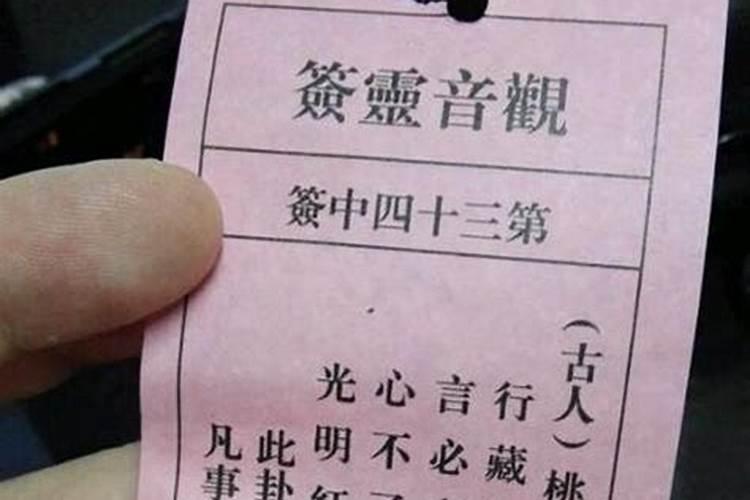 觀音靈簽
第三十四中簽
(古人)桃
行藏
言必
心不
光明
此卦
凡事